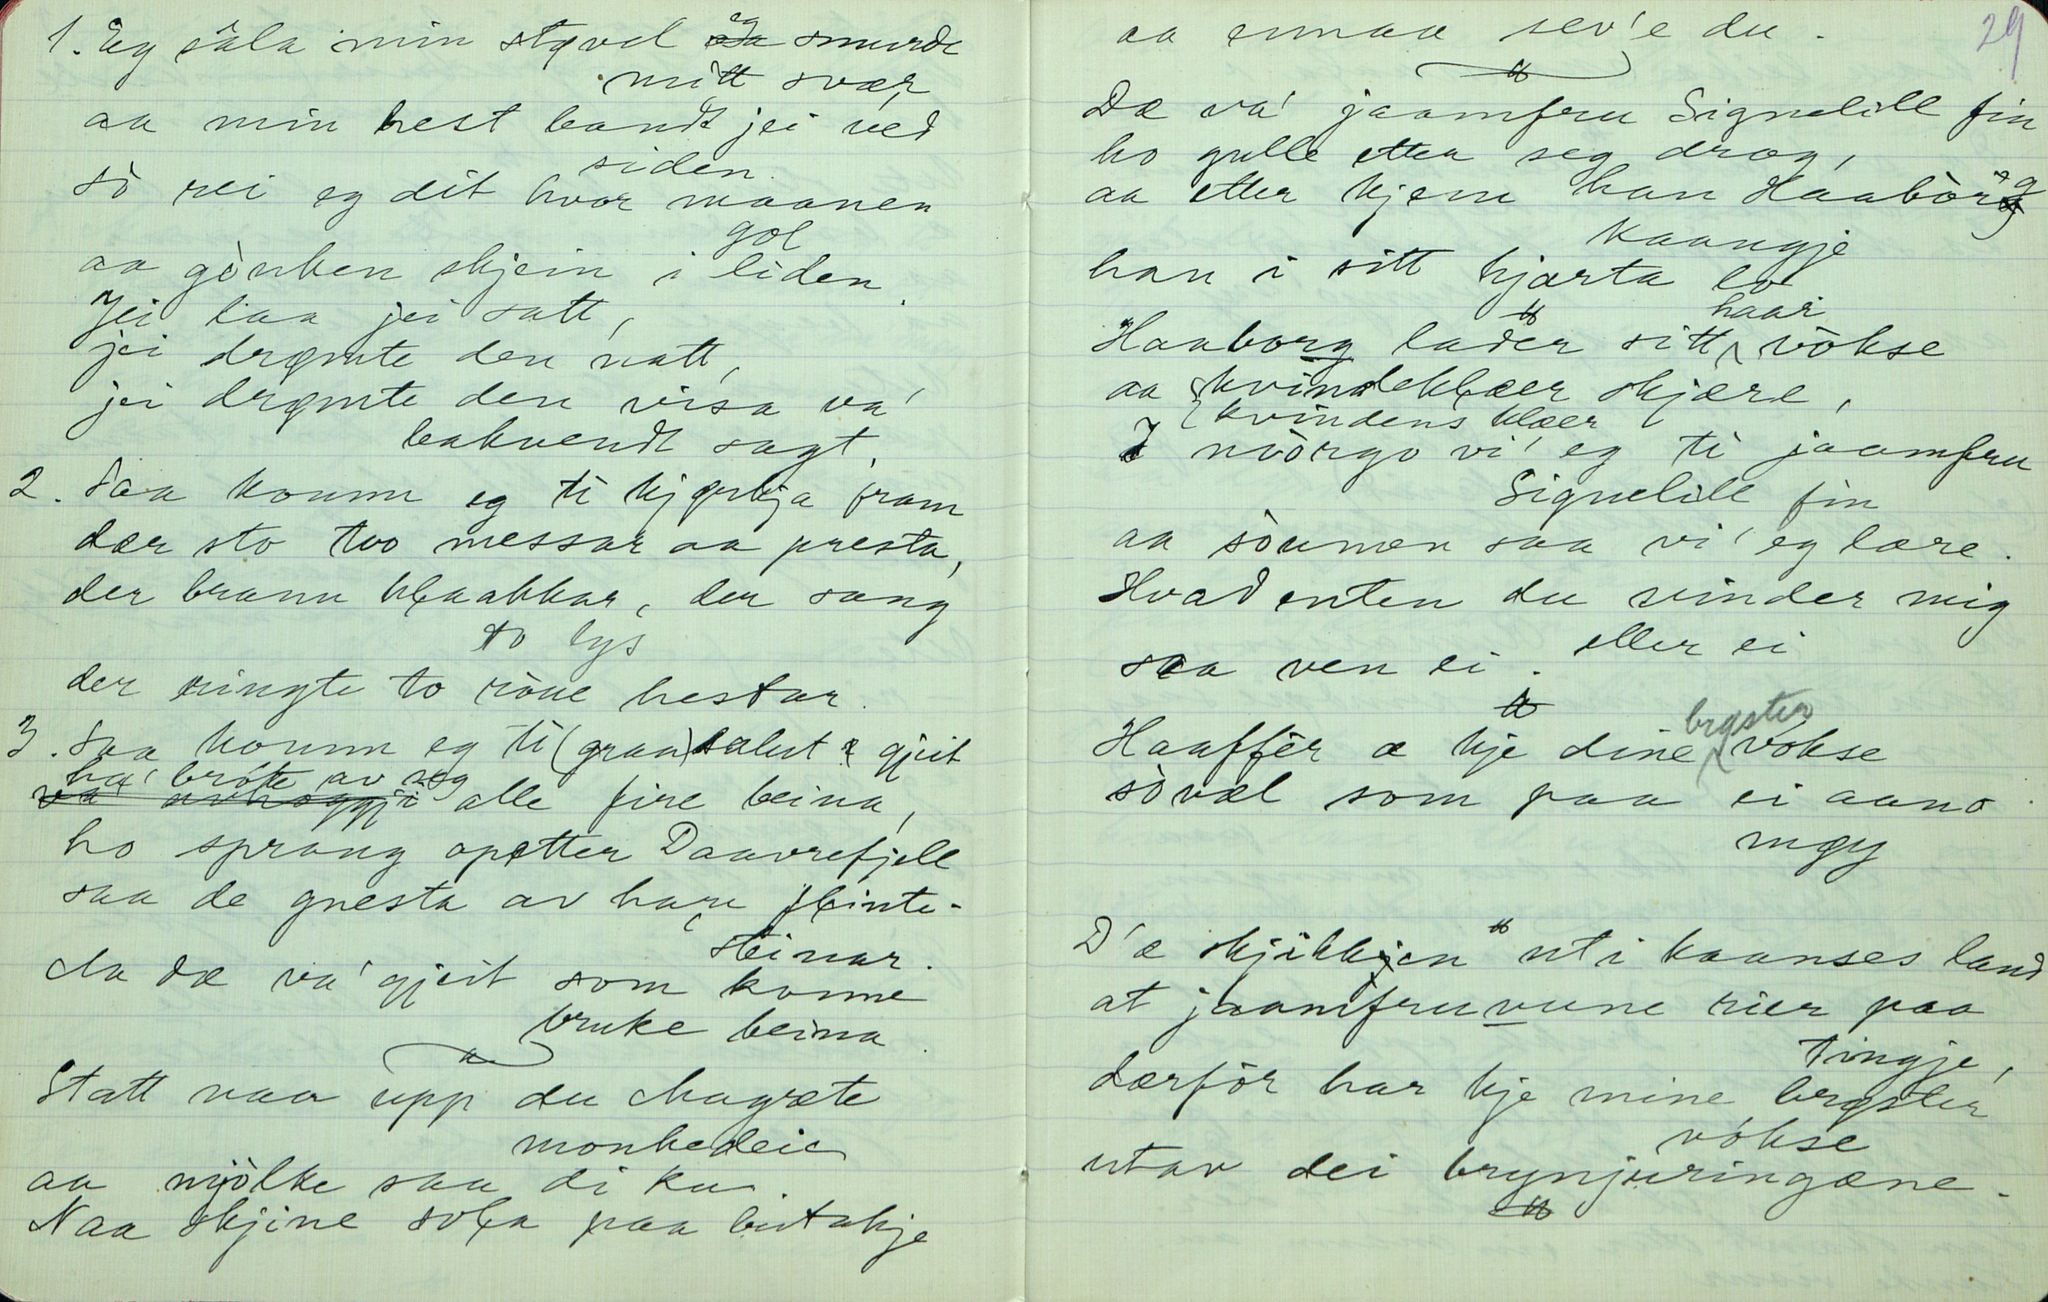 1. Eg såla min støvel eg smurde
mitt svær
aa min hest bandt jei ved
siden
så rei eg dit hvor maanen
gol
aa gòuken skjein i liden.
Jei laa jei satt,
jei drømte den natt,
jei drømte den visa va'
bakvendt sagt.
2. Saa koumm eg ti kjørkja fram
dær sto two messar aa presta,
der brann klaakkar, der sang
to lys
der ringte to ròue hestar.
3. Saa koumm eg ti (graa) salut gjeit
ha' brote av seg
alle fire beina,
ho sprang opetter Daavrefjell
saa de gnesta av hare flinte-
steinar.
Ja dæ va' gjeit som konne
bruke beina.
Statt naa upp du Magræte
monkedeie
aa mjòlke saa di ku.
Naa skjine sola paa butakje
29
aa ennaa sev'e du.
Dæ va' jaamfru Signelill fin
ho gulle etter seg drog,
aa etter kjem han Haabòrg
kaangje
han i sitt hjarta lo.
haar
Haaborg lader sitt vòkse
aa kvindeklæer skjære,
kvindens klæer
I nòorgo vi' eg ti jaamfru
Signelill fin
aa sòumen saa vi' eg lære.
Hvad enten du vinder mig
eller ei
saa ven ei.
brøster
Haaffèr æ kje dine vokse
sòvæl som paa ei aano
møy
D'æ skjikkjen uti kaanses land
at jaamfruvune rier paa
tingje,
dærfòr har kje mine brøster
vòkse
utav dei brynjuringæne.